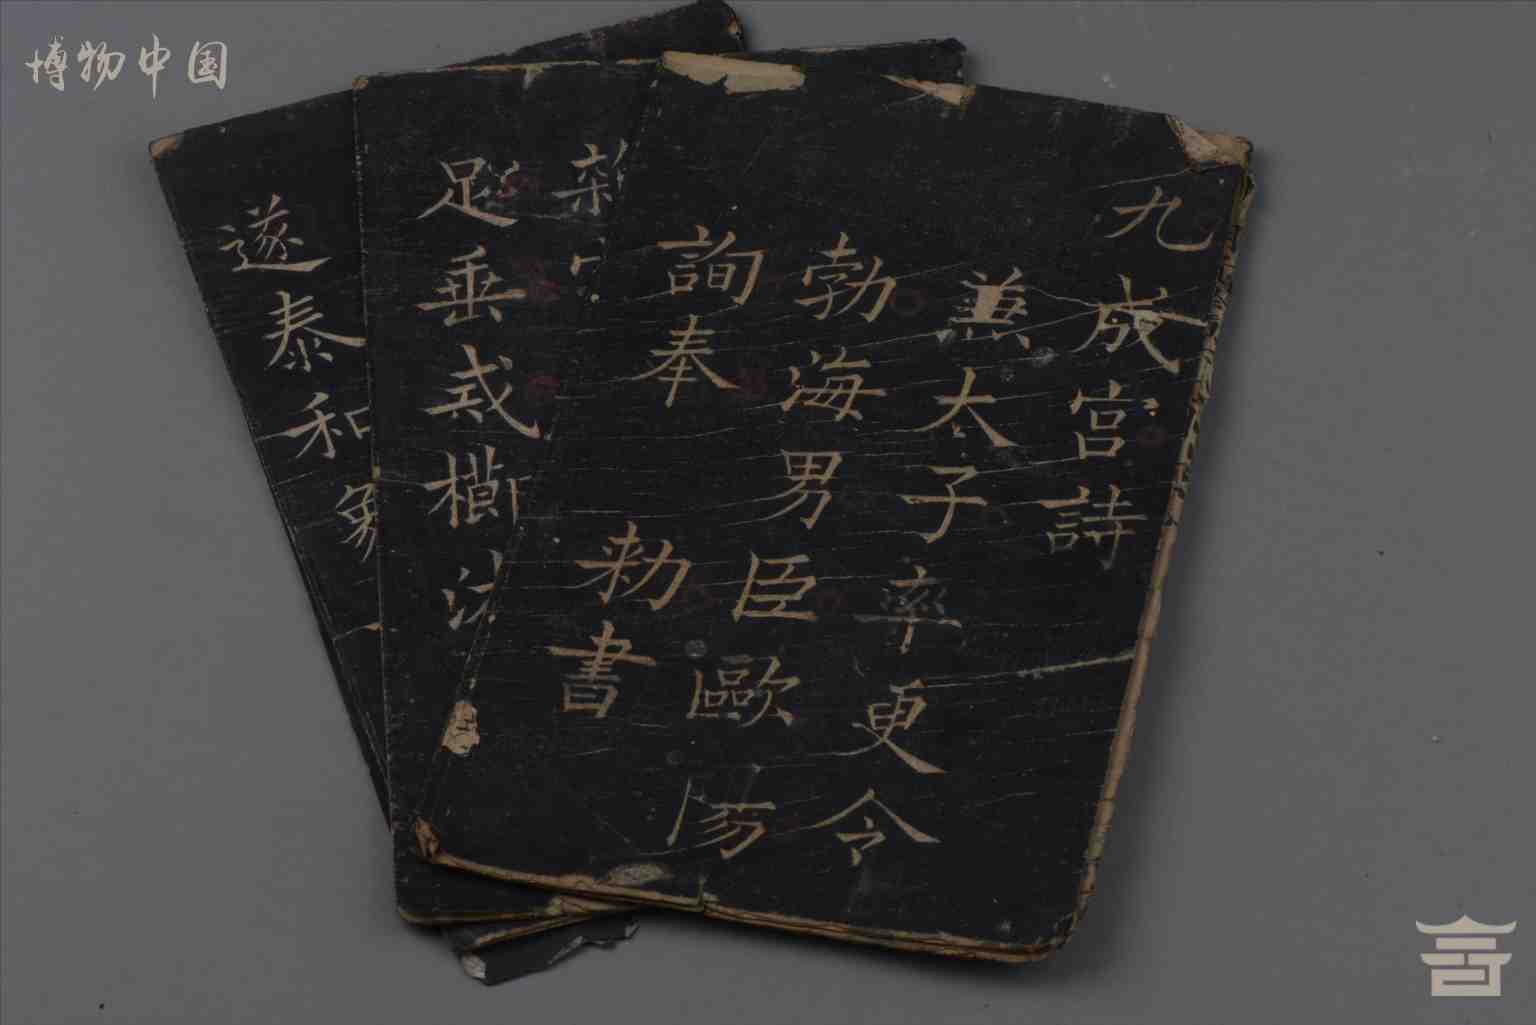 博物中国
九成宫詩
兼太子率更令
勃海男臣歐陽
詢奉
勅書
足垂戒櫛法
遂泰和